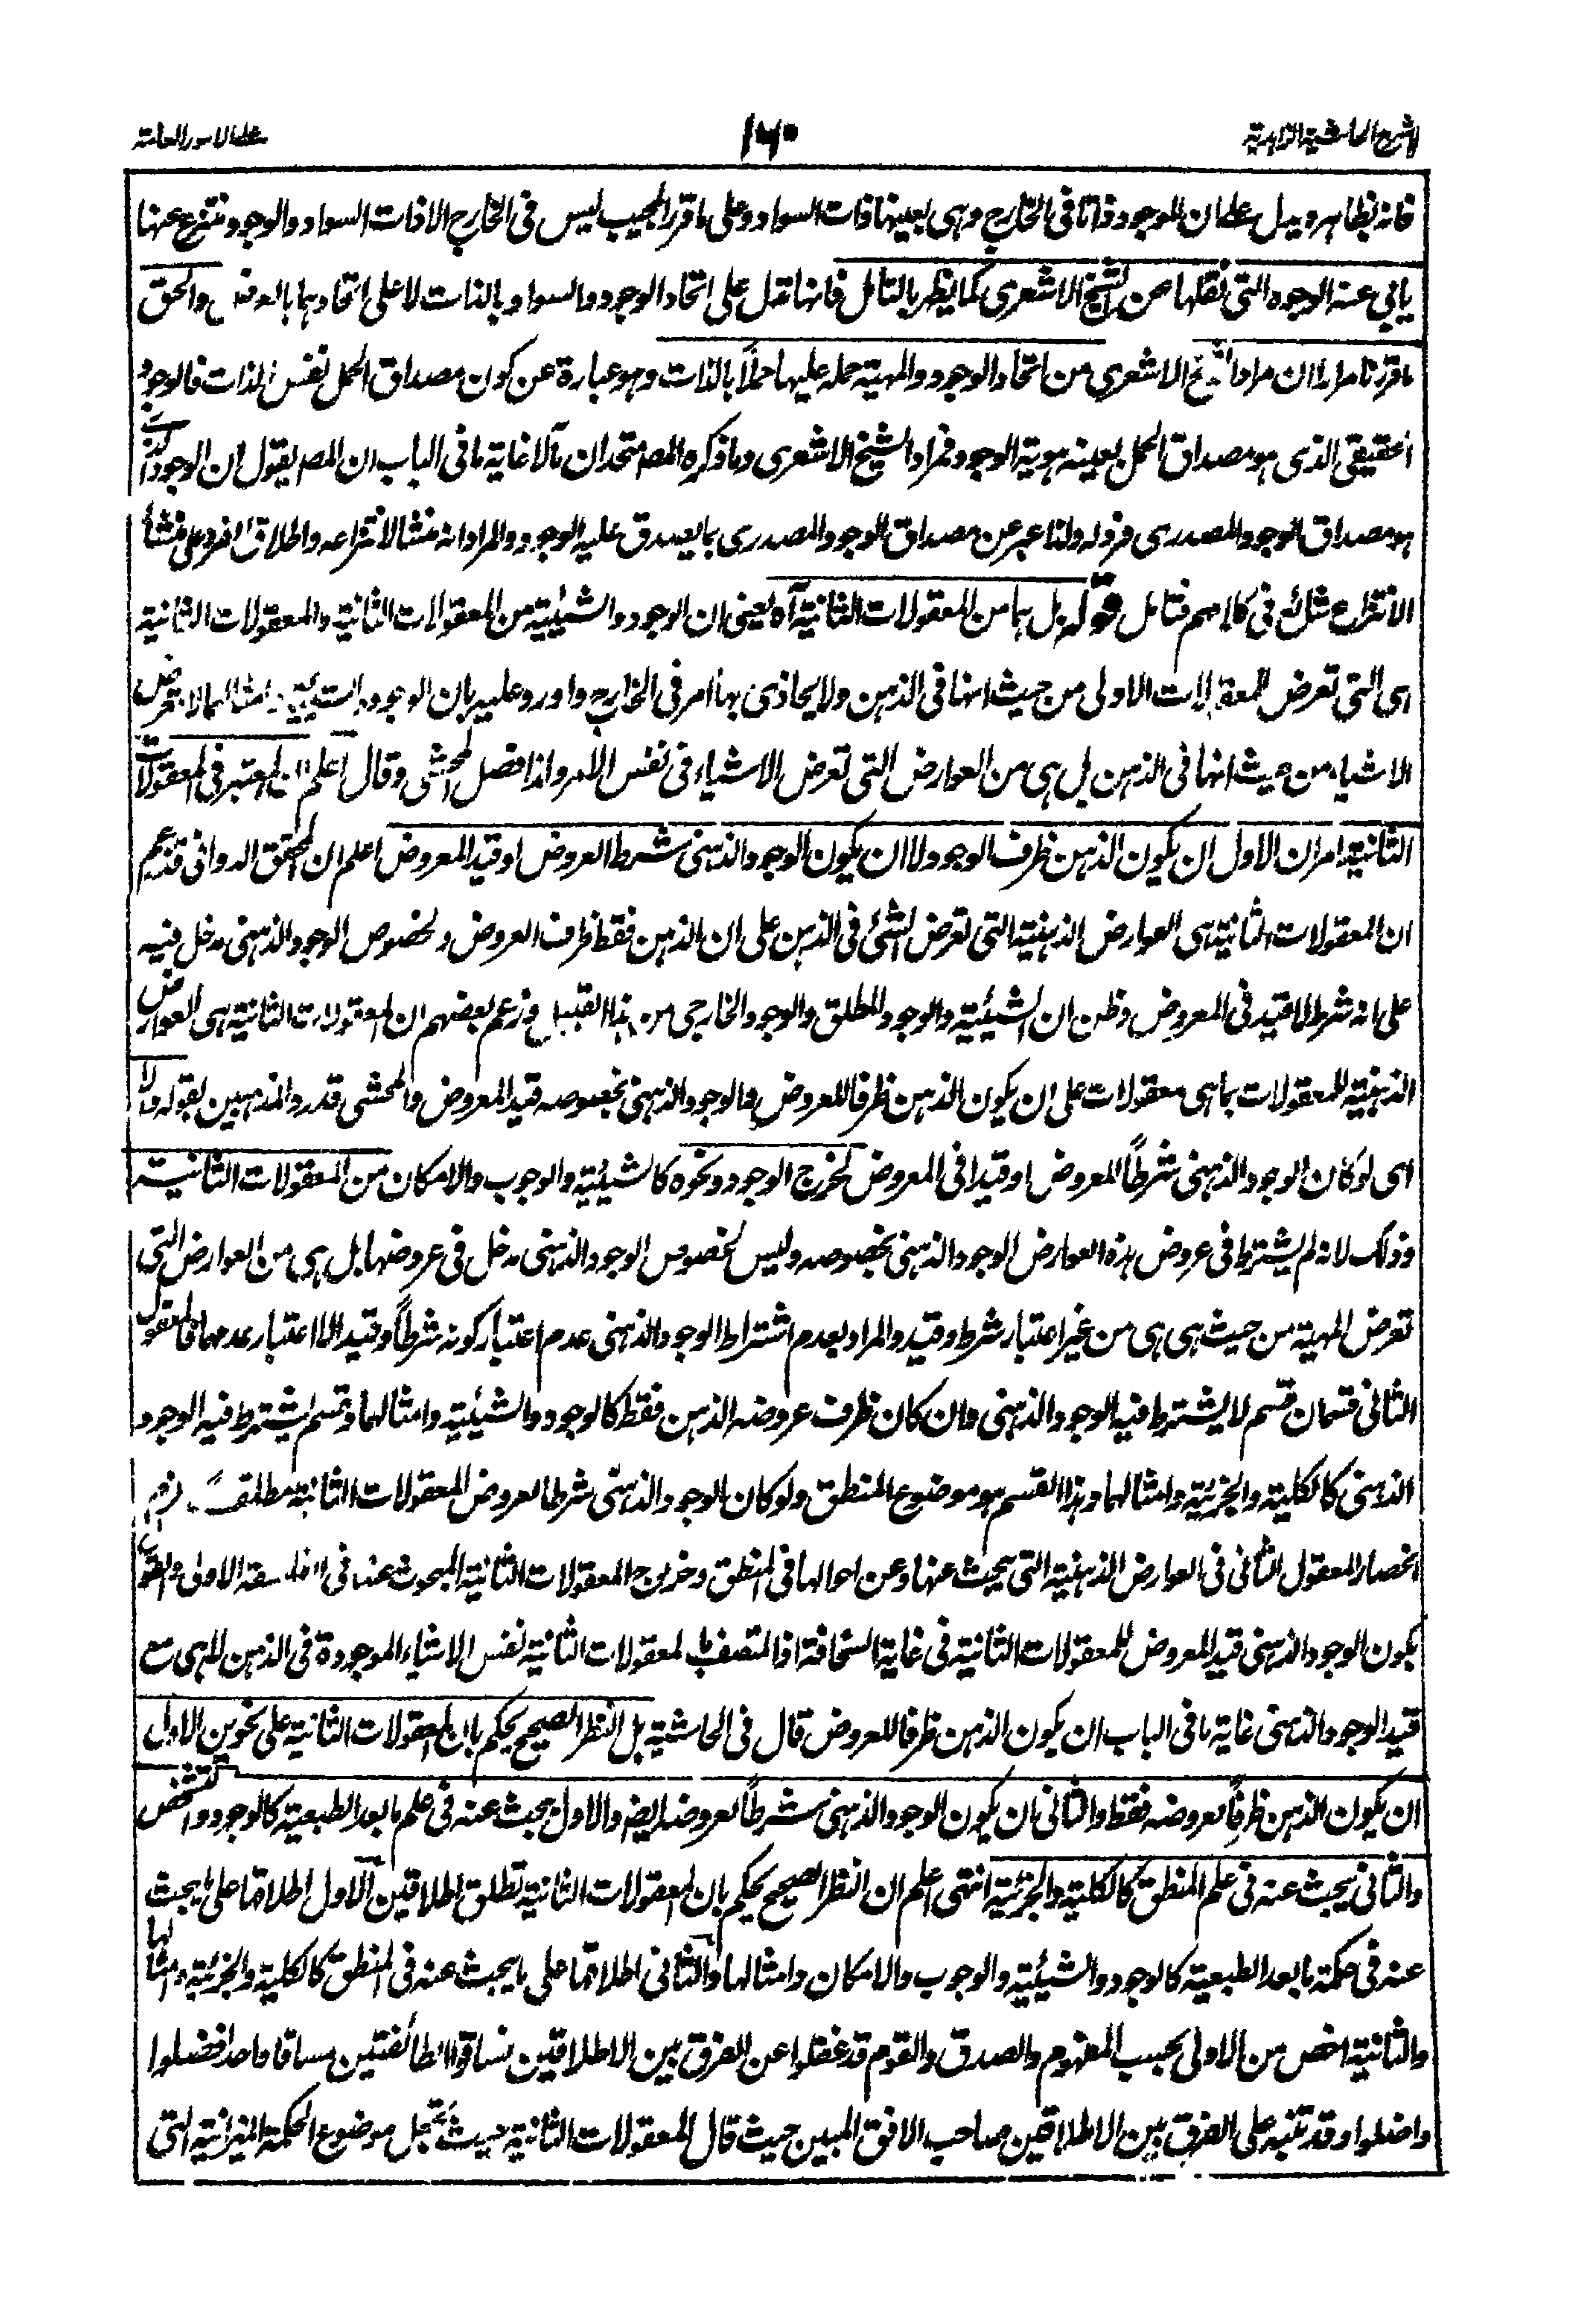 شرح الحاشية الزاهدية
١٦٠
على الامور العامة
فانه بظاهره يدل على ان للوجود ذاتا فى الخارج وهى بعينها ذات السواد وعلى ما قرر المجيب ليس فى الخارج الا ذات السواد والوجود منتزع عنها
يابى عنه الوجوه التى نقلها عن الشيخ الاشعرى كما يظهر بالتامل فانها تدل على اتحاد الوجود والسواد بالذات لا على اتحادهما بالعرض والحق
ما قررنا مرارا ان مراد الشيخ الاشعرى من اتحاد الوجود والمهية حمله عليها حملاً بالذات وهو عبارة عن كون مصداق الحمل نفس الذات فالوجود
الحقيقى الذى هو مصداق الحمل بعينه هوية الوجود فمراد الشيخ الاشعرى وما ذكره المصـ متحدان مآلا غاية ما فى الباب ان المصـ يقول ان الوجود الذى
هو مصداق الوجود المصدرى فرد له ولذا عبر عن مصداق الوجود المصدرى بما يصدق عليه الوجود والمراد انه منشا لانتزاعه واطلاق الفرد على منشأ
الانتزاع شائع فى كلامهم فتامل قوله بل هما من المعقولات الثانية آه يعنى ان الوجود والشيئية من المعقولات الثانية والمعقولات الثانية
هى التى تعرض للمعقولات الاولى من حيث انها فى الذهن ولا يحاذى بها امر فى الخارج واورد عليه بان الوجود والشيئية وامثالهما لا تعرض
الاشياء من حيث انها فى الذهن بل هى من العوارض التى تعرض الاشياء فى نفس الامر ولذا فصل المحشى وقال اعلم ان المعتبر فى المعقولات
الثانية امران الاول ان يكون الذهن ظرف الوجود لا ان يكون الوجود الذهنى شرط العروض او قيد المعروض اعلم ان المحقق الدوانى قد زعم
ان المعقولات الثانية هى العوارض الذهنية التى تعرض الشئ فى الذهن على ان الذهن فقط ظرف العروض ولخصوص الوجود الذهنى مدخل فيه
على انه شرط لا قيد فى المعروض وظن ان الشيئية والوجود المطلق والوجود الخارجى من هذا القبيل وزعم بعضهم ان المعقولات الثانية هى العوارض
الذهنية للمعقولات بما هى معقولات على ان يكون الذهن ظرفا للعروض والوجود الذهنى بخصوصه قيد المعروض والمحشى قد رد المذهبين بقوله والا
اى لو كان الوجود الذهنى شرطاً للعروض او قيدا فى المعروض لخرج الوجود ونحوه كالشيئية والوجوب والامكان من المعقولات الثانية
وذلك لانه لم يشترط فى عروض هذه العوارض الوجود الذهنى بخصوصه وليس لخصوص الوجود الذهنى مدخل فى عروضها بل هى من العوارض التى
تعرض المهية من حيث هى هى من غير اعتبار شرط وقيد والمراد بعدم اشتراط الوجود الذهنى عدم اعتبار كونه شرطاً وقيدا لا اعتبار عدمهما فالمعقول
الثانى قسمان قسم لا يشترط فيه الوجود الذهنى وان كان ظرف عروضه الذهن فقط كالوجود والشيئية وامثالهما وقسم يشترط فيه الوجود
الذهنى كالكلية والجزئية وامثالهما وهذا القسم هو موضوع المنطق ولو كان الوجود الذهنى شرطا لعروض المعقولات الثانية مطلقاً لزم
انحصار المعقول الثانى فى العوارض الذهنية التى يبحث عنها وعن احوالها فى المنطق وخروج المعقولات الثانية المبحوث عنها فى الفلسفة الاولى والقول
بكون الوجود الذهنى قيد المعروض للمعقولات الثانية فى غاية السخافة اذ المتصف بالمعقولات الثانية نفس الاشياء الموجودة فى الذهن لا هى مع
قيد الوجود الذهنى غاية ما فى الباب ان يكون الذهن ظرفا للعروض قال فى الحاشية بل النظر الصحيح يحكم بان المعقولات الثانية على نحوين الاول
ان يكون الذهن ظرفاً لعروضه فقط والثانى ان يكون الوجود الذهنى شرطاً لعروضه ايضـ والاول يبحث عنه فى علم ما بعد الطبعية كالوجود والتشخص
والثانى يبحث عنه فى علم المنطق كالكلية والجزئية انتهى اعلم ان النظر الصحيح يحكم بان المعقولات الثانية تطلق اطلاقين الاول اطلاقها على ما يبحث
عنه فى حكمة ما بعد الطبعية كالوجود والشيئية والوجوب والامكان وامثالها والثانى اطلاقها على ما يبحث عنه فى المنطق كالكلية والجزئية وامثالها
والثانية اخص من الاولى بحسب المفهوم والصدق والقوم قد غفلوا عن الفرق بين الاطلاقين فساقوا الطائفتين مساقا واحدا فضلوا
واضلوا وقد تنبه على الفرق بين الاطلاقين صاحب الافق المبين حيث قال المعقولات الثانية حيث تجعل موضوع الحكمة الميزانية التى